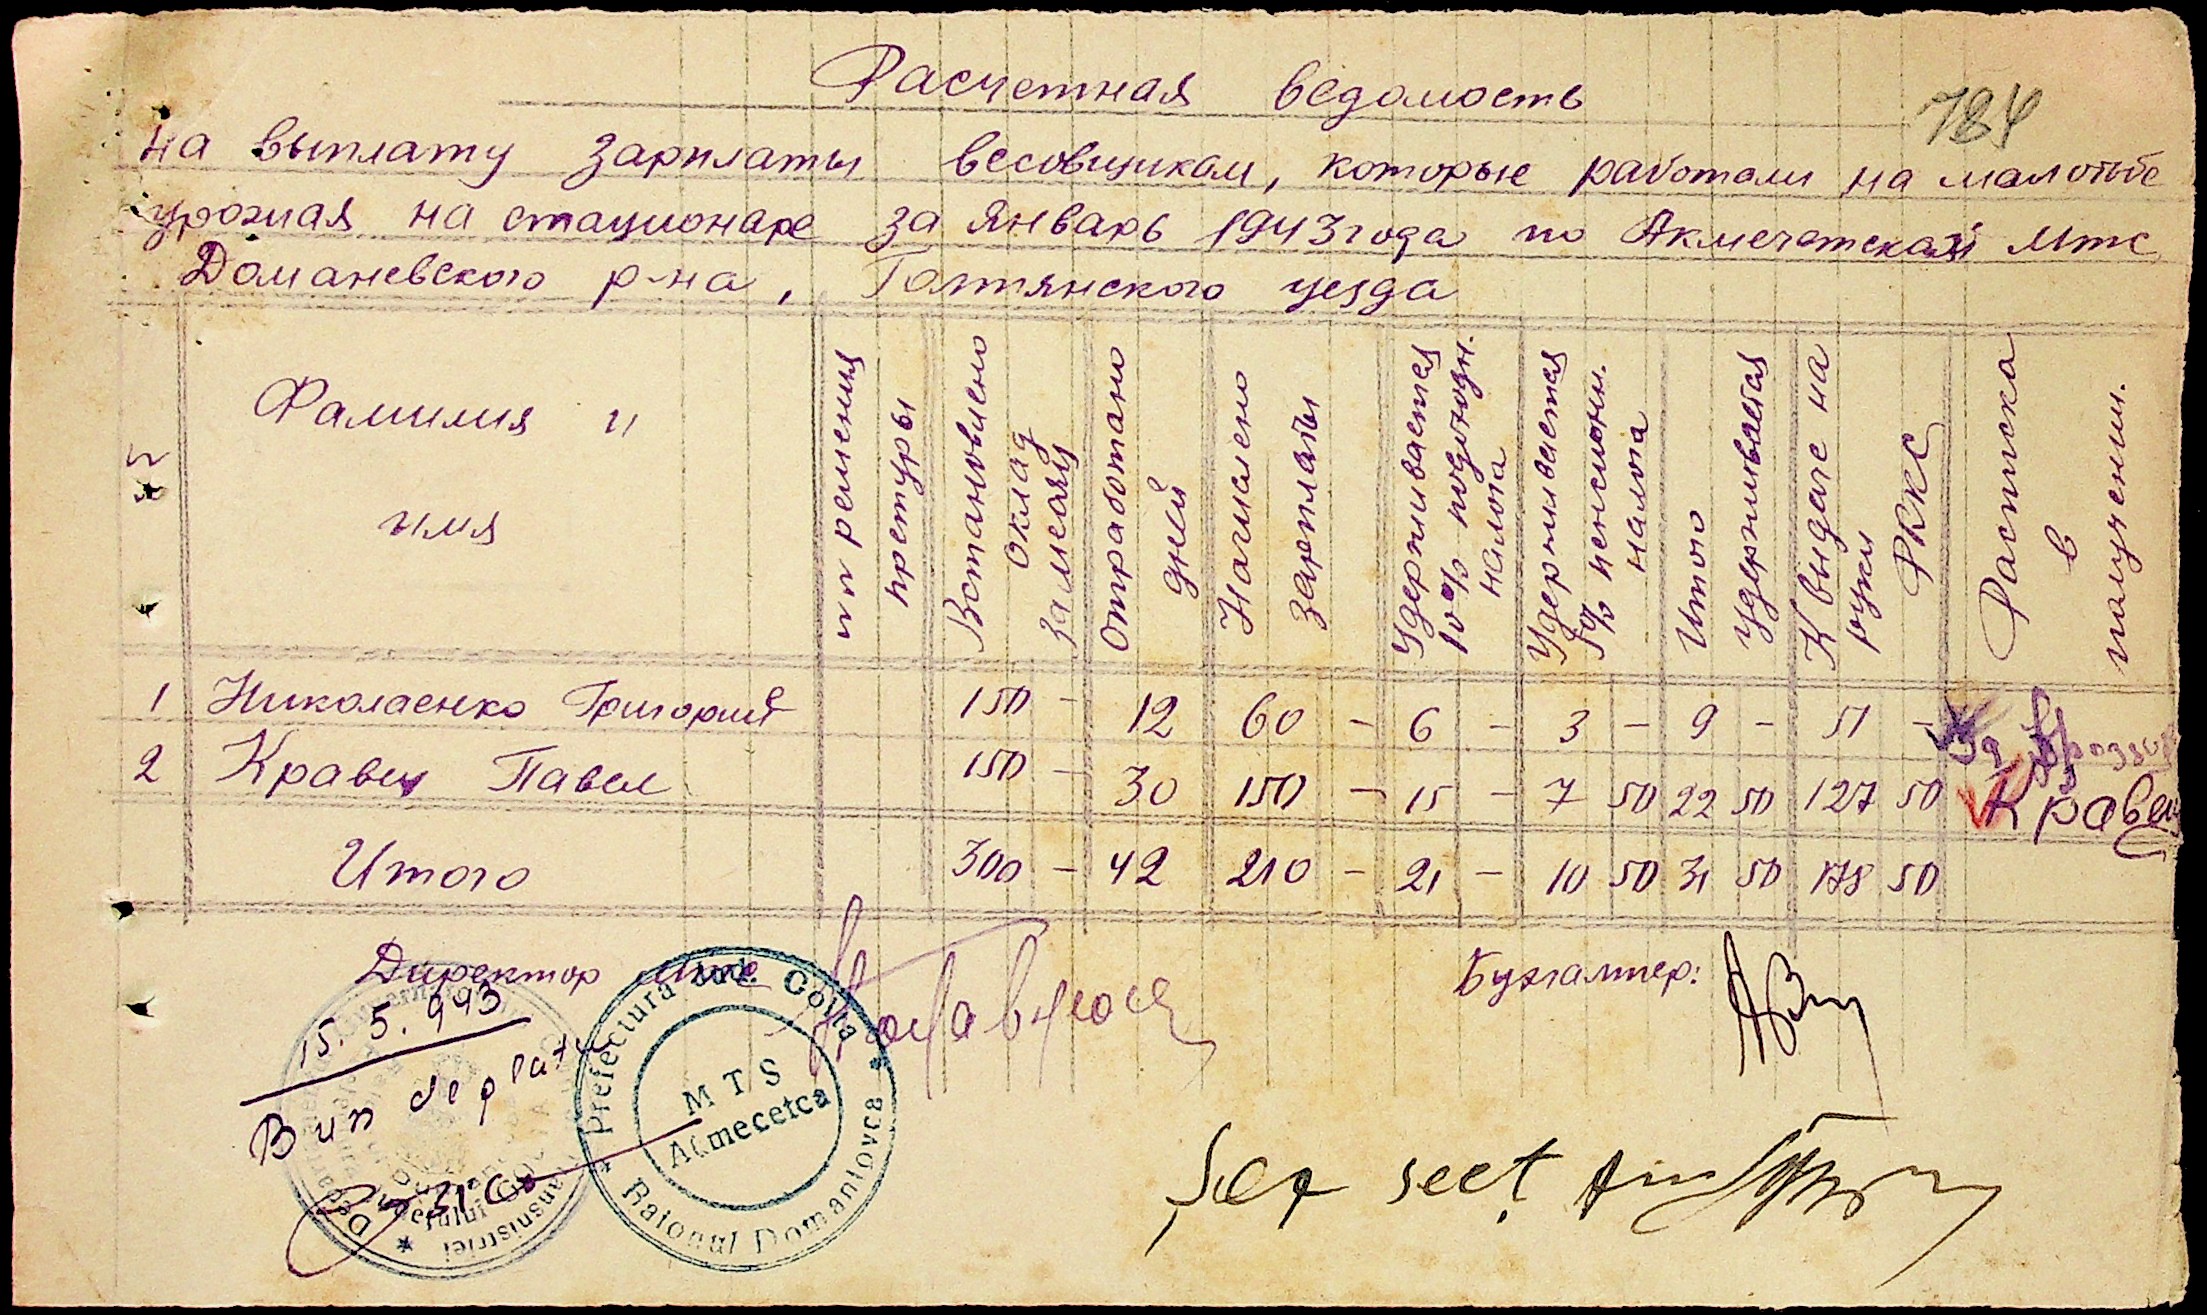 Расчетная ведомость
784
на выплату зарплаты весовщикам, которые работали на молотьбе
урожая на стационаре за январь 1943 года по Акмечетской Мтс
Доманевского р-на, Голтянского уезда
№№
Фамилия и имя
по решения претуры
Встановлено оклад за месяц
Отработано дней
Начислено зарплаты
Удерживается 10% подоходн. налога
Удерживается 5% пенсионн. налога
Итого удерживается
К выдаче на руки РККС
Расписка в получении.
1 Николаенко Григорий 150 - 12 60 - 6 - 3 - 9 - 51 -
2 Кравец Павел 150 - 30 150 - 15 - 7 50 22 50 127 50 Кравец
Итого 300 - 42 210 - 21 - 10 50 31 50 178 50
Директор Мтс
Бухгалтер:
15. 5. 943
Bun de plată
Prefectura Jud. Golta
Raionul Domaniovca
MTS
Acmecetca
Șef secț